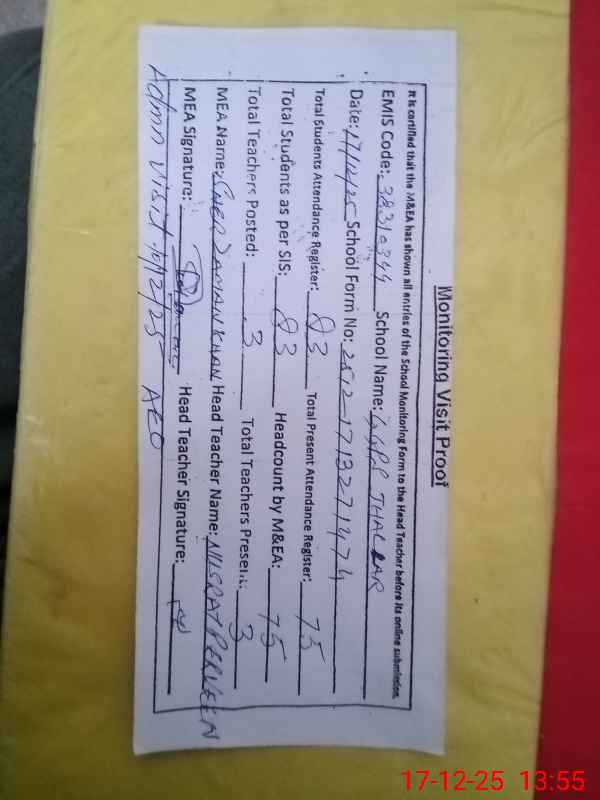 Monitoring Visit Proof
It is certified that the M&EA has shown all entries of the School Monitoring Form to the Head Teacher before its online submission.
EMIS Code: 38310944 School Name: GGPS THALLAR
Date: 17/12/25 School Form No: 2512-1713271474
Total Students Attendance Register: 83 Total Present Attendance Register: 75
Total Students as per SIS: 83 Headcount by M&EA: 75
Total Teachers Posted: 3 Total Teachers Present: 3
MEA Name: SHER ZAMAN KHAN Head Teacher Name: NUSRAT PERVEEN
MEA Signature: Head Teacher Signature:
Admn visit 10/12/25 AEO
17-12-25 13:55